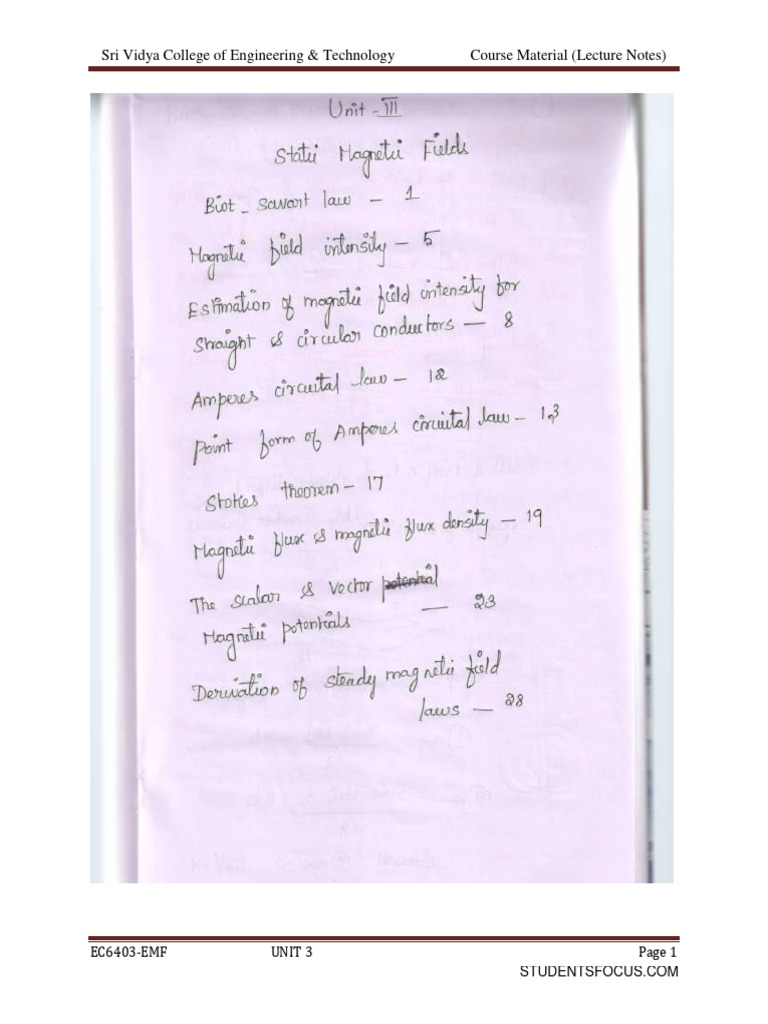 Sri Vidya College of Engineering & Technology Course Material (Lecture Notes)
Unit - III
Static Magnetic Fields
Biot - Savart law - 1
Magnetic field intensity - 5
Estimation of magnetic field intensity for
Straight & circular conductors - 8
Amperes circuital law - 12
Point form of Amperes circuital law - 13
Stokes theorem - 17
Magnetic flux & magnetic flux density - 19
The scalar & vector potential
Magnetic potentials - 23
Derivation of steady magnetic field
laws - 28
EC6403-EMF UNIT 3 Page 1
STUDENTSFOCUS.COM